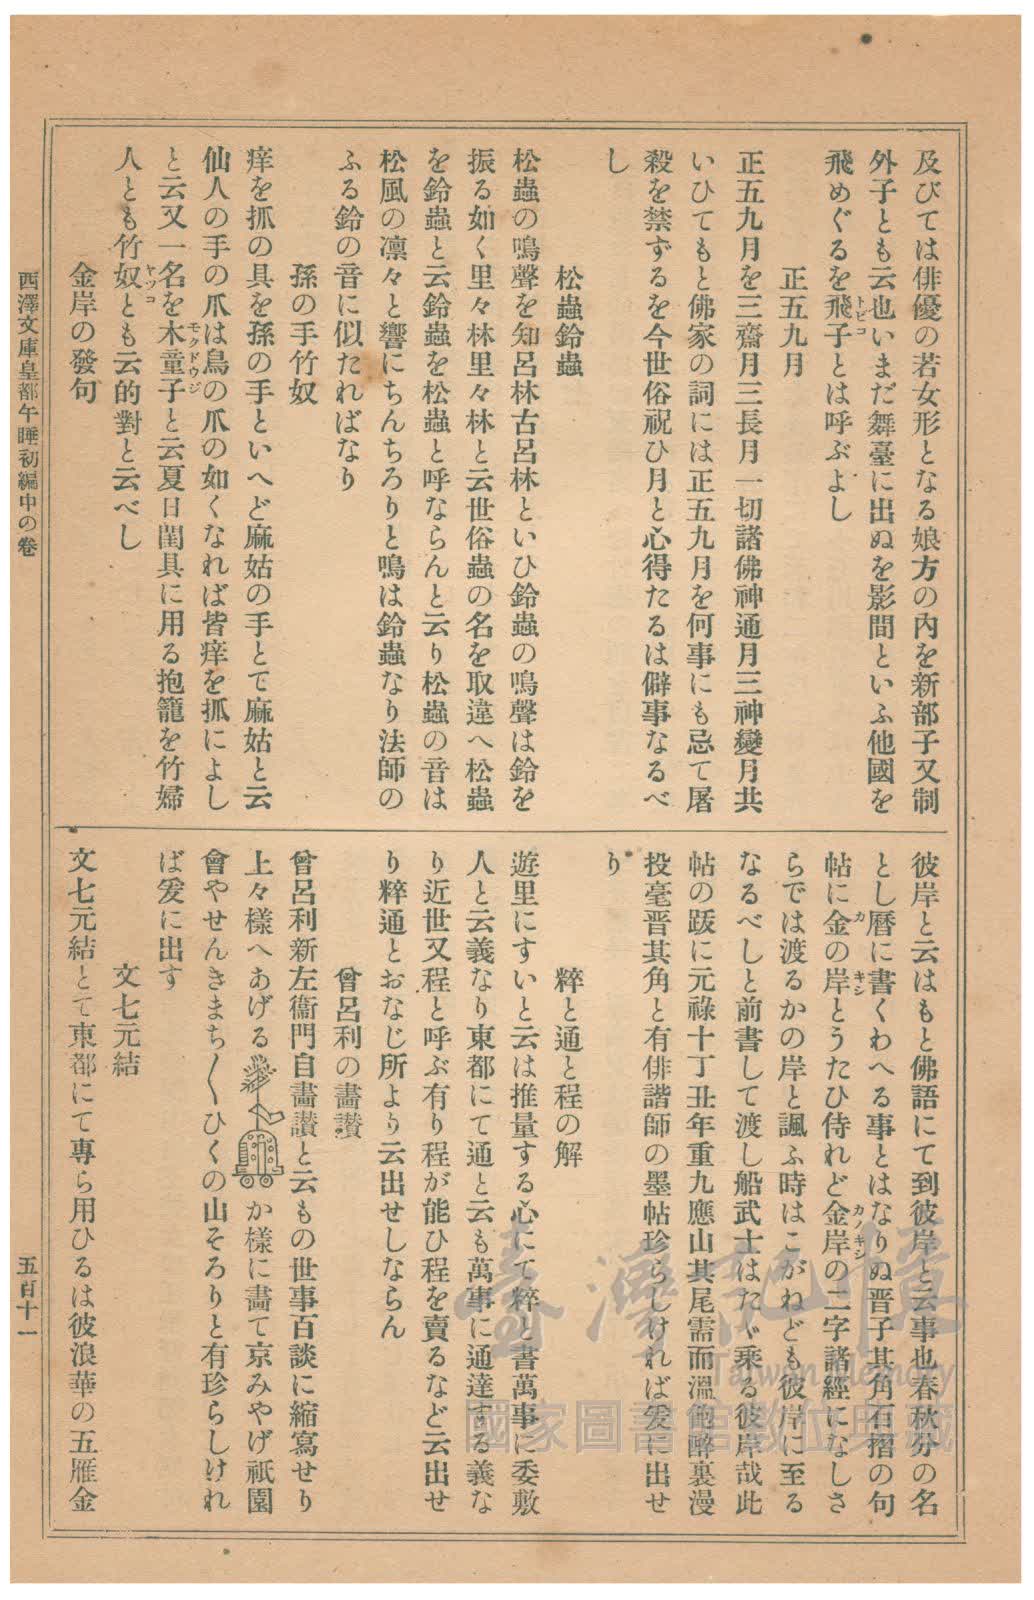 及びては俳優の若女形となる娘方の內を新部子又制
外子とも云也いまだ舞臺に出ぬを影間といふ他國を
飛めぐるを飛子とは呼ぶよし
トビコ
正五九月
正五九月を三齋月三長月一切諸佛神通月三神變月共
いひてもと佛家の詞には正五九月を何事にも忌て屠
殺を禁ずるを今世俗祝ひ月と心得たるは僻事なるべ
し
松蟲鈴蟲
松蟲の鳴聲を知呂林古呂林といひ鈴蟲の鳴聲は鈴を
振る如く里々林里々林と云世俗蟲の名を取違へ松蟲
を鈴蟲と云鈴蟲を松蟲と呼ならんと云り松蟲の音は
松風の凛々と響にちんちろりと鳴は鈴蟲なり法師の
ふる鈴の音に似たればなり
孫の手竹奴
痒を抓の具を孫の手といへど麻姑の手とて麻姑と云
仙人の手の爪は鳥の爪の如くなれば皆痒を抓によし
と云又一名を木童子と云夏日閨具に用る抱籠を竹婦
モクドウジ
人とも竹奴とも云的對と云べし
ヤツコ
金岸の發句
彼岸と云はもと佛語にて到彼岸と云事也春秋分の名
とし曆に書くわへる事とはなりぬ晋子其角石摺の句
帖に金の岸とうたひ侍れど金岸の二字諸經になしさ
カ キシ カノキシ
らでは渡るかの岸と諷ふ時はこがねども彼岸に至る
なるべしと前書して渡し船武士はたゞ乘る彼岸哉此
帖の跋に元祿十丁丑年重九應山其尾需而溫飽醉裏漫
投毫晋其角と有俳諧師の墨帖珍らしければ爰に出せ
り
粹と通と程の解
遊里にすいと云は推量する心にて粹と書萬事に委敷
人と云義なり東都にて通と云も萬事に通達する義な
り近世又程と呼ぶ有り程が能ひ程を賣るなど云出せ
り粹通とおなじ所より云出せしならん
曾呂利の畵讃
曾呂利新左衞門自畵讃と云もの世事百談に縮寫せり
上々樣へあげる か樣に畵て京みやげ祇園
會やせんきまち〳〵ひくの山そろりと有珍らしけれ
ば爰に出す
文七元結
文七元結とて東都にて專ら用ひるは彼浪華の五雁金
西澤文庫皇都午睡初編中の卷
五百十一
臺灣記憶
Taiwan Memory
國家圖書館數位典藏